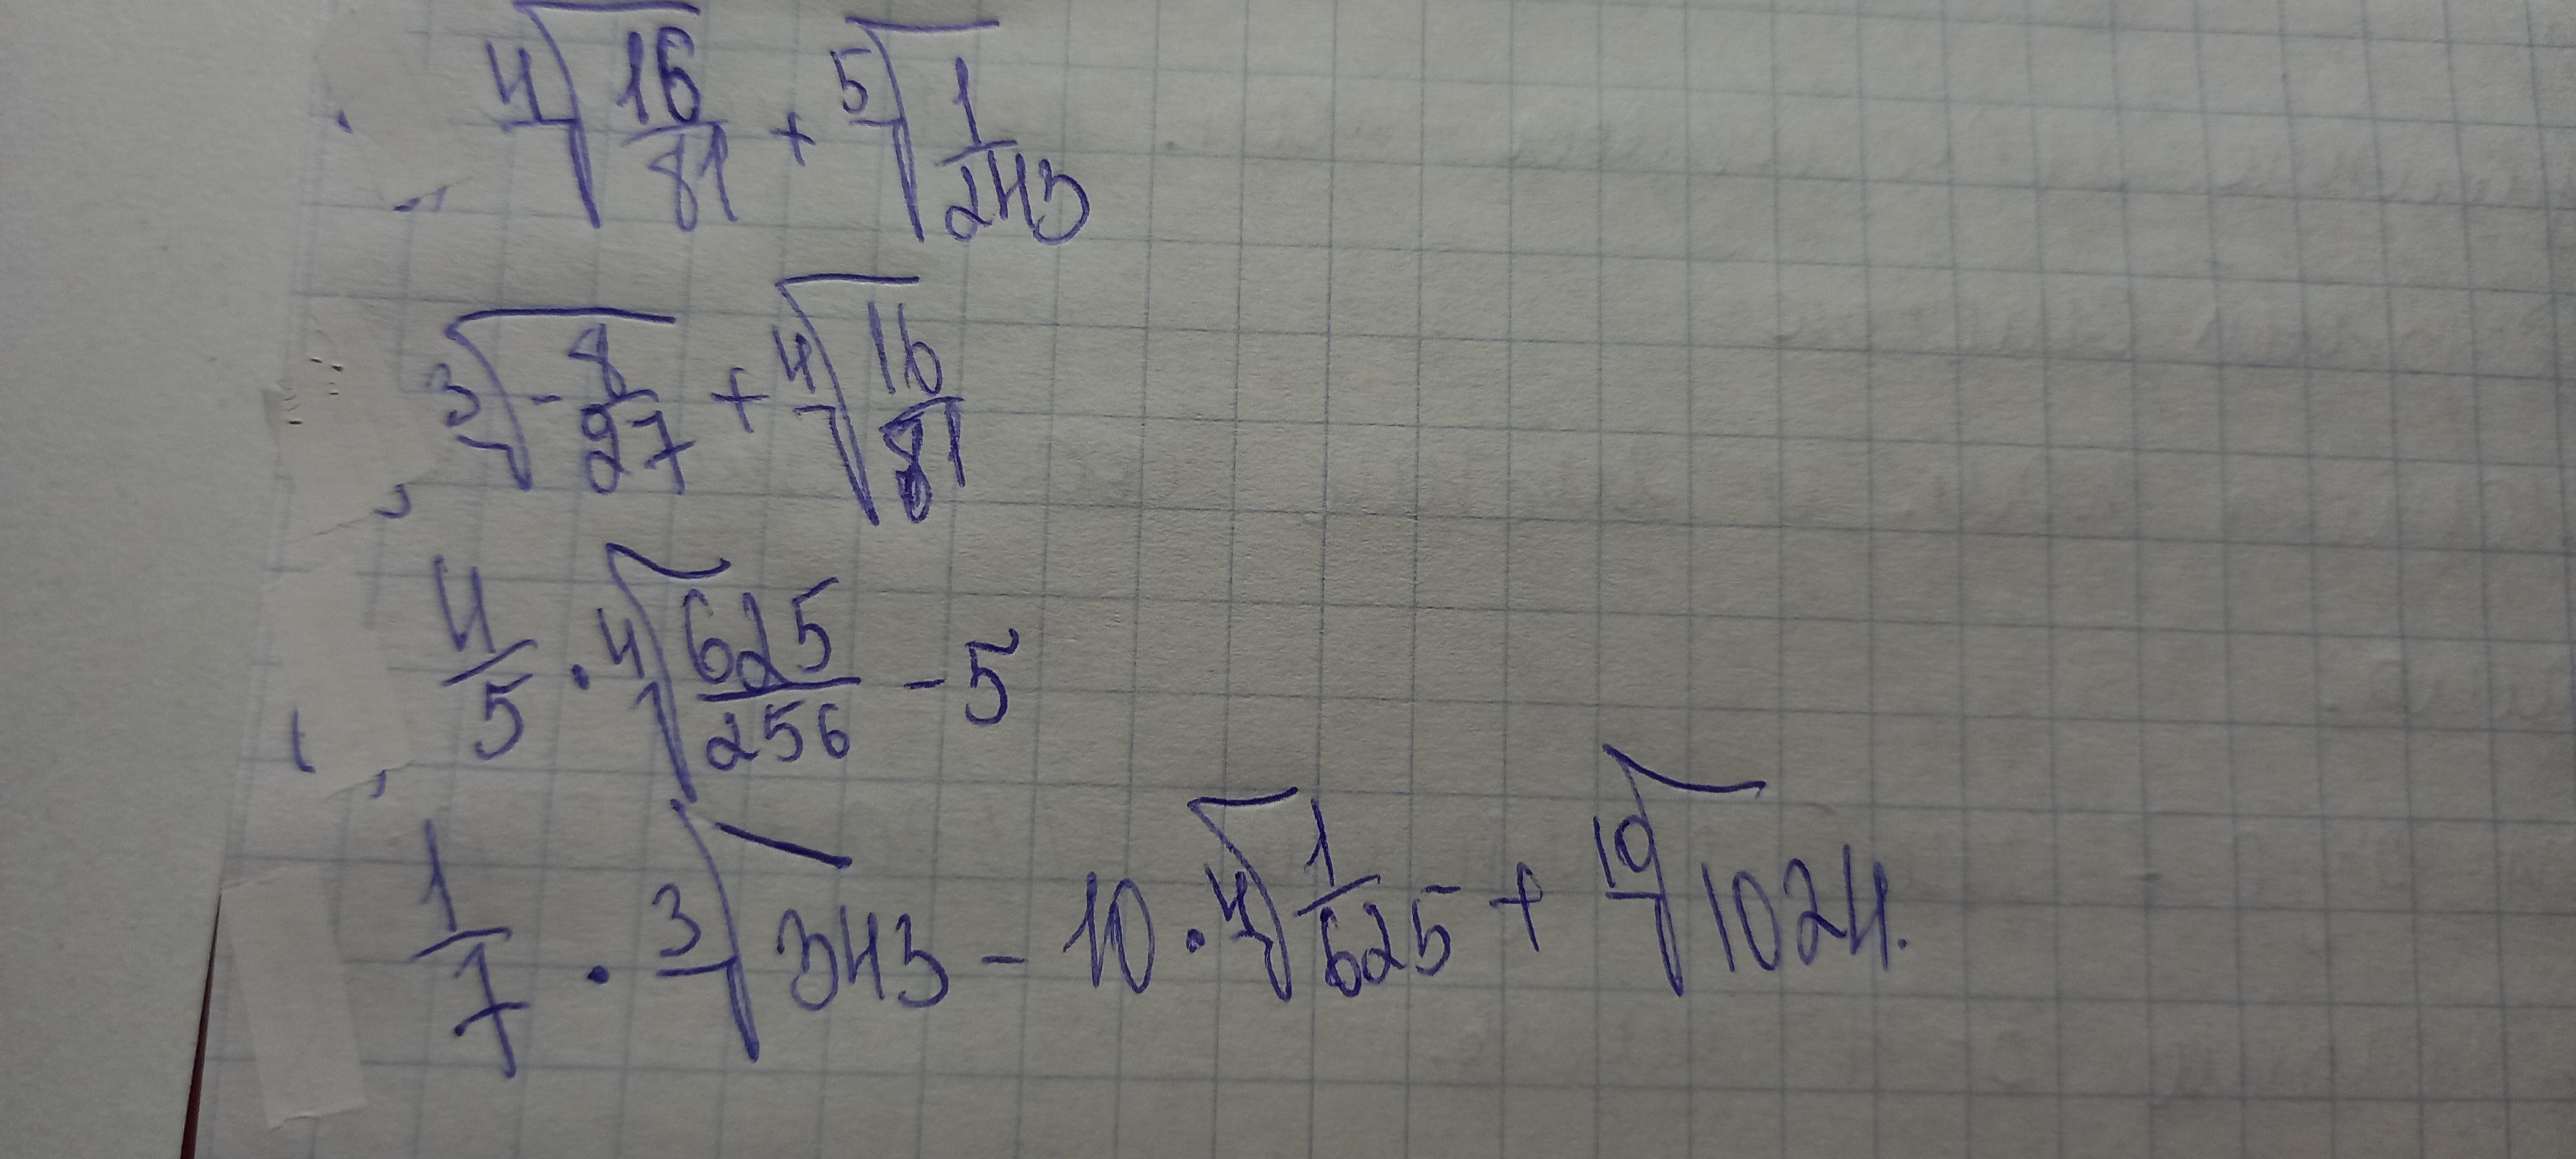 ⁴√(16/81) + ⁵√(1/243)
³√(-8/27) + ⁴√(16/81)
4/5 · ⁴√(625/256) - 5
1/7 · ³√343 - 10 · ⁴√(1/625) + ¹⁰√1024.